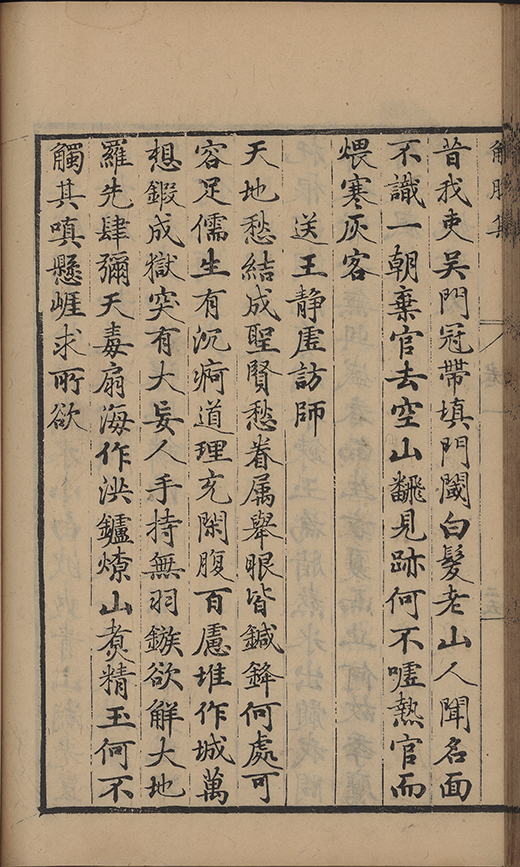 解脫集
昔我吏吳門冠帶填門閾白髮老山人聞名面
不識一朝棄官去空山飜見跡何不噓熱官而
煨寒灰客
送王靜虛訪師
天地愁結成聖賢愁眷属舉眼皆鍼鋒何處可
容足儒生有沉痾道理充閑腹百慮堆作城萬
想鍛成獄突有大妄人手持無羽鏃欲解大地
羅先肆彌天毒扇海作洪鑪燎山煑精玉何不
觸其嗔懸崕求所欲